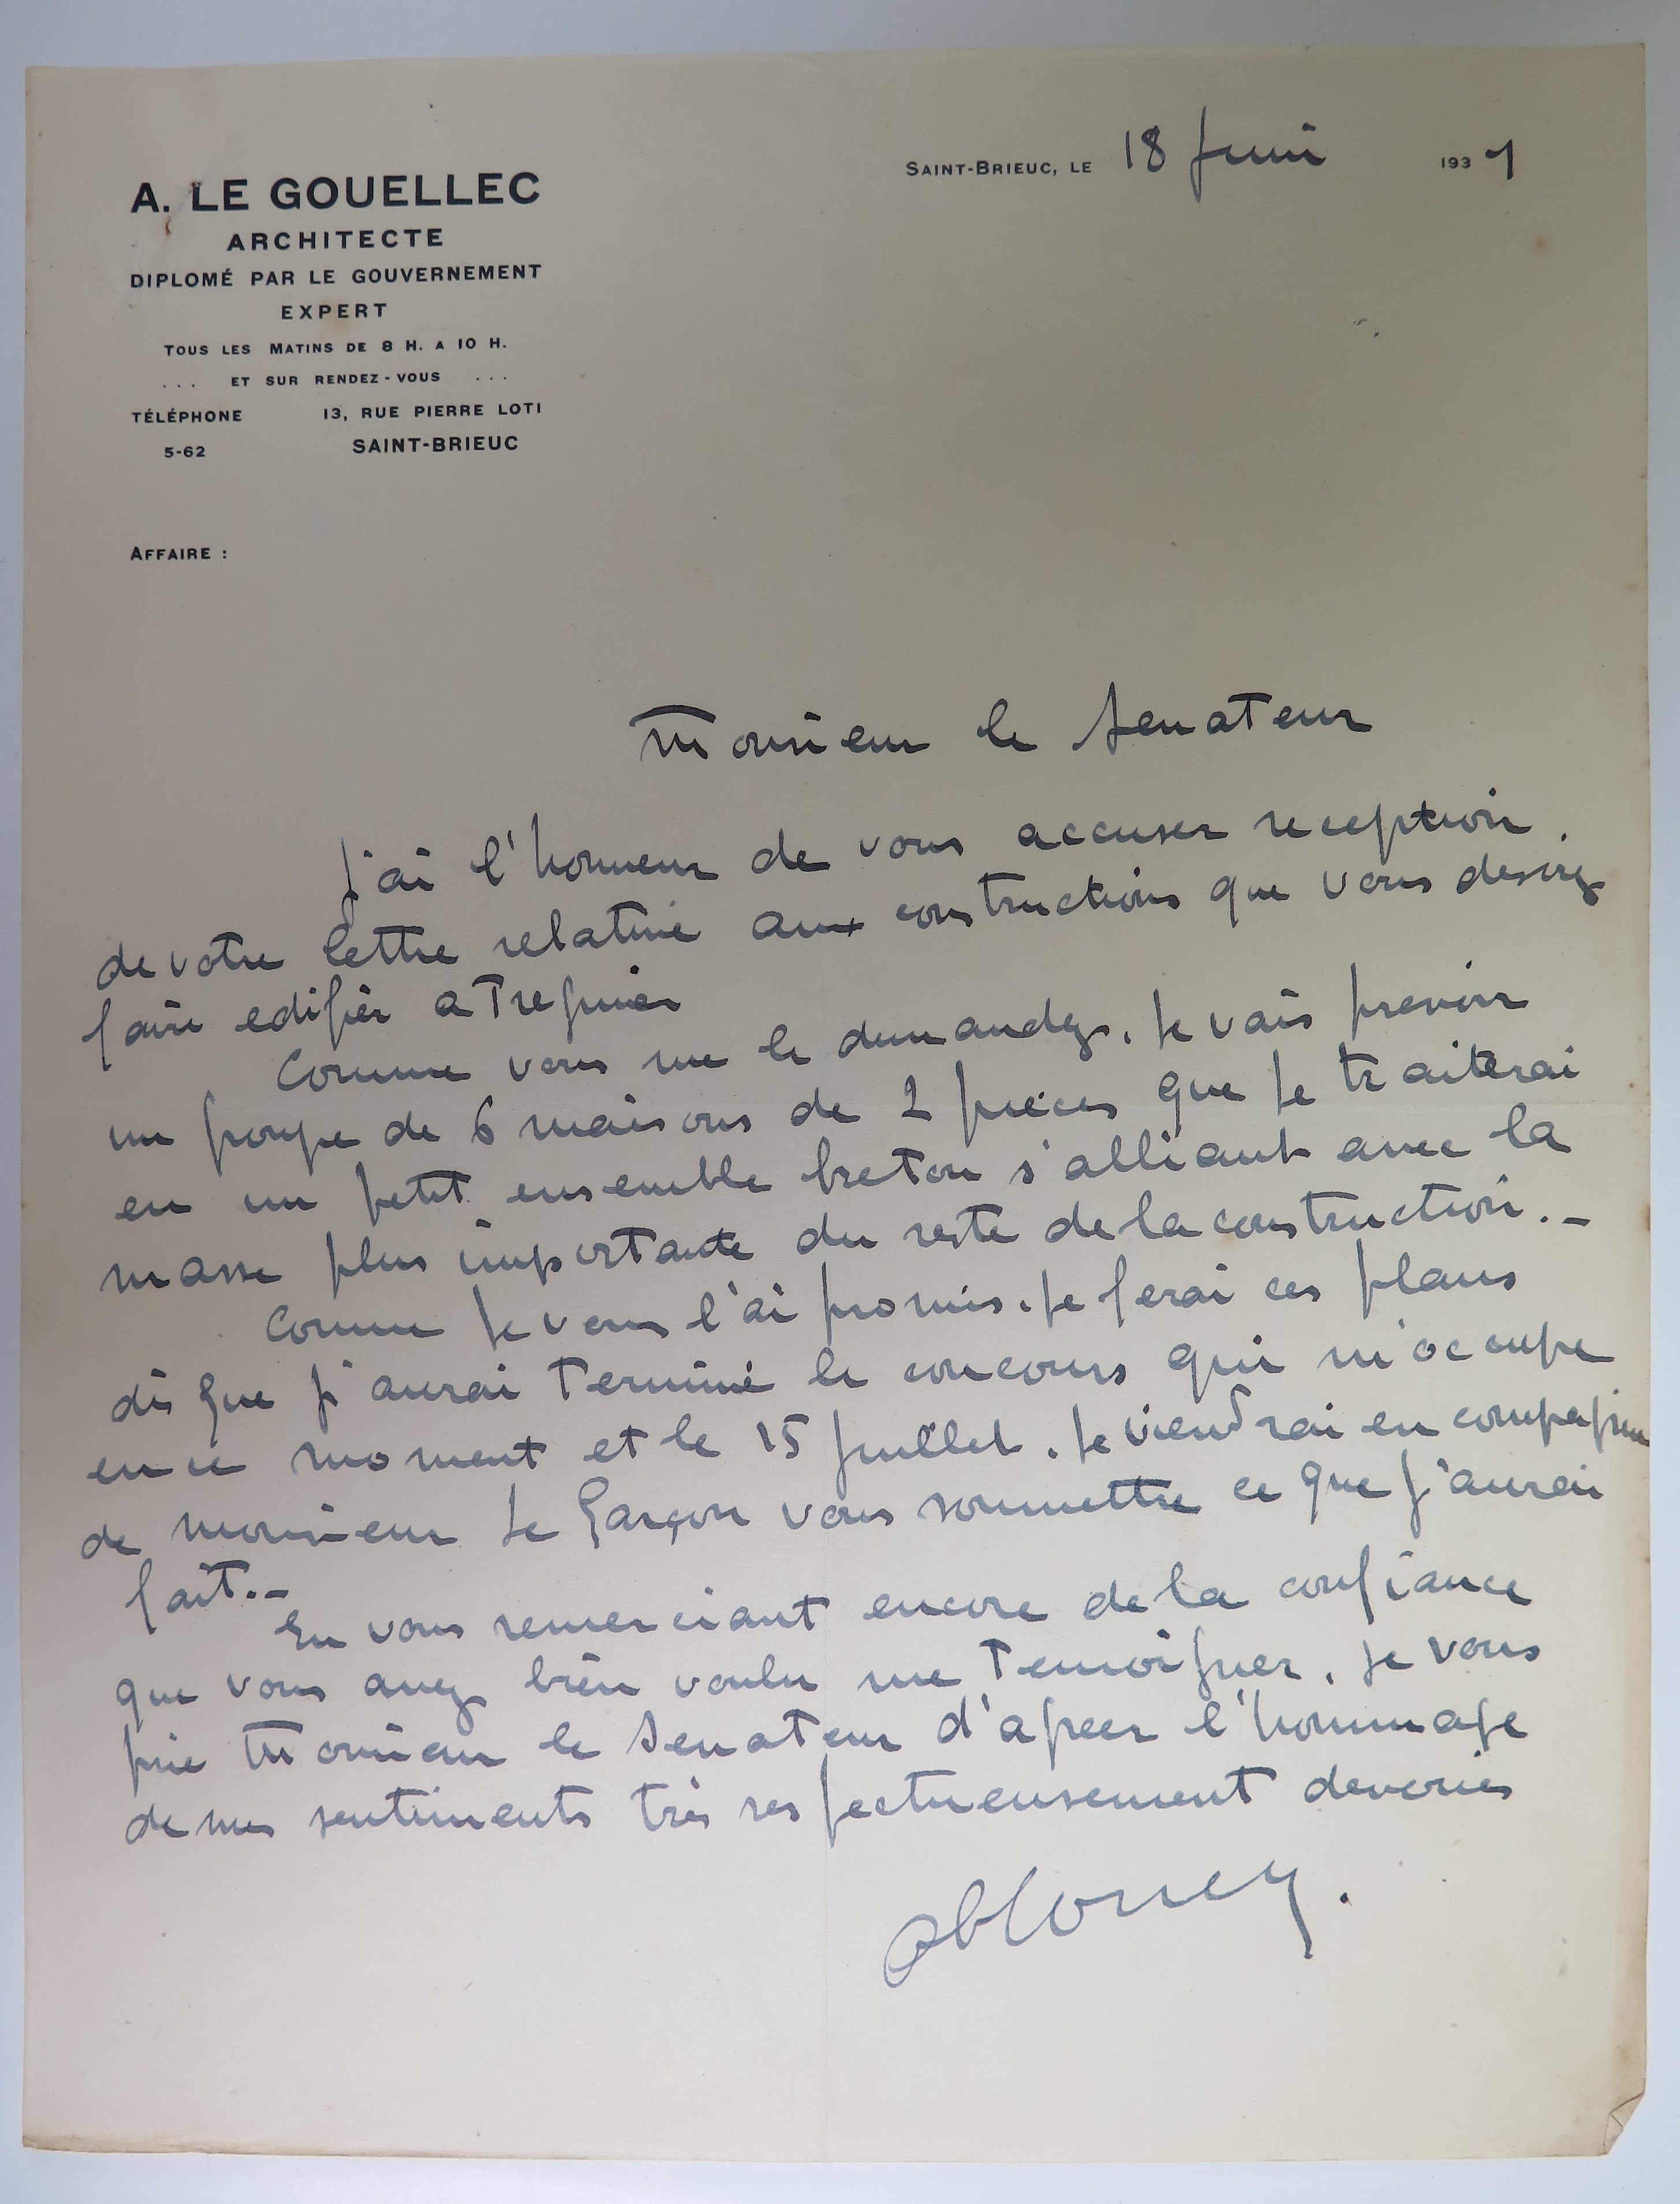 A. LE GOUELLEC
ARCHITECTE
DIPLOMÉ PAR LE GOUVERNEMENT
EXPERT
TOUS LES MATINS DE 8 H. A 10 H.
... ET SUR RENDEZ-VOUS ...
TÉLÉPHONE 13, RUE PIERRE LOTI
5-62 SAINT-BRIEUC
SAINT-BRIEUC, LE 18 Juin 1937
AFFAIRE :
Monsieur le Senateur
J'ai l'honneur de vous accuser reception
de votre lettre relative aux constructions que vous desirez
faire edifier a Treguier
Comme vous me le demandez, je vais prevoir
un groupe de 6 maisons de 2 pièces que je traiterai
en un petit ensemble breton s'alliant avec la
masse plus importante du reste de la construction.-
Comme je vous l'ai promis, je ferai ces plans
dès que j'aurai terminé le concours qui m'occupe
en ce moment et le 15 Juillet, je viendrai en compagnie
de monsieur Le Garçon vous soumettre ce que j'aurai
fait.-
En vous remerciant encore de la confiance
que vous avez bien voulu me temoigner, je vous
prie Monsieur le Senateur d'agreer l'hommage
de mes sentiments très respectueusement devoués